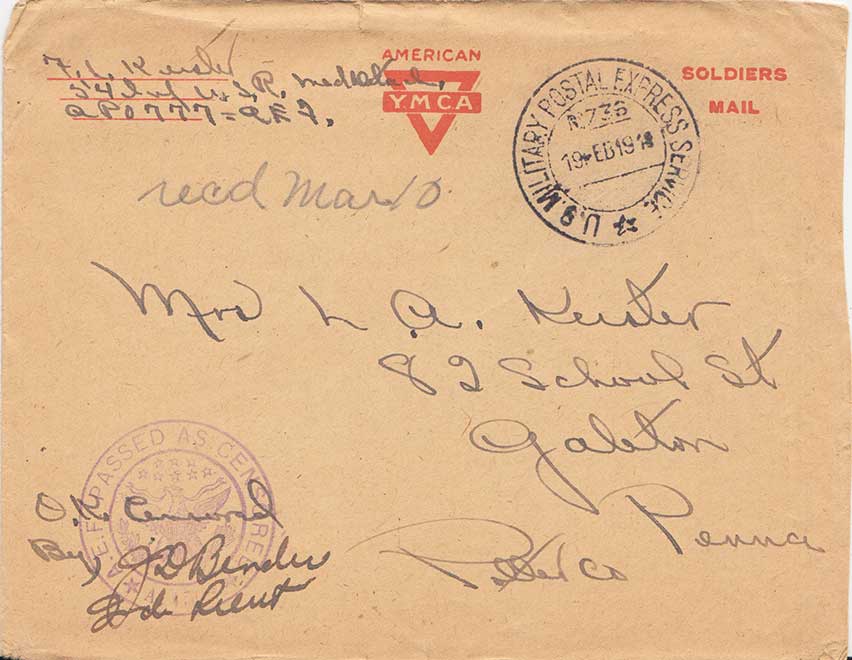 F. L. Keister
54 Inf U.S.R. Med Detach.
APO 777 = A.E.F.
AMERICAN
YMCA
SOLDIERS
MAIL
U.S. MILITARY POSTAL EXPRESS SERVICE
No 736
19 FEB 1919
recd Mar 10
Mrs L A. Keister
82 School St
Galeton
Penna
Potter Co
A.E.F. PASSED AS CENSORED
O.K. Censored
By, J D Bender
2d Lieut